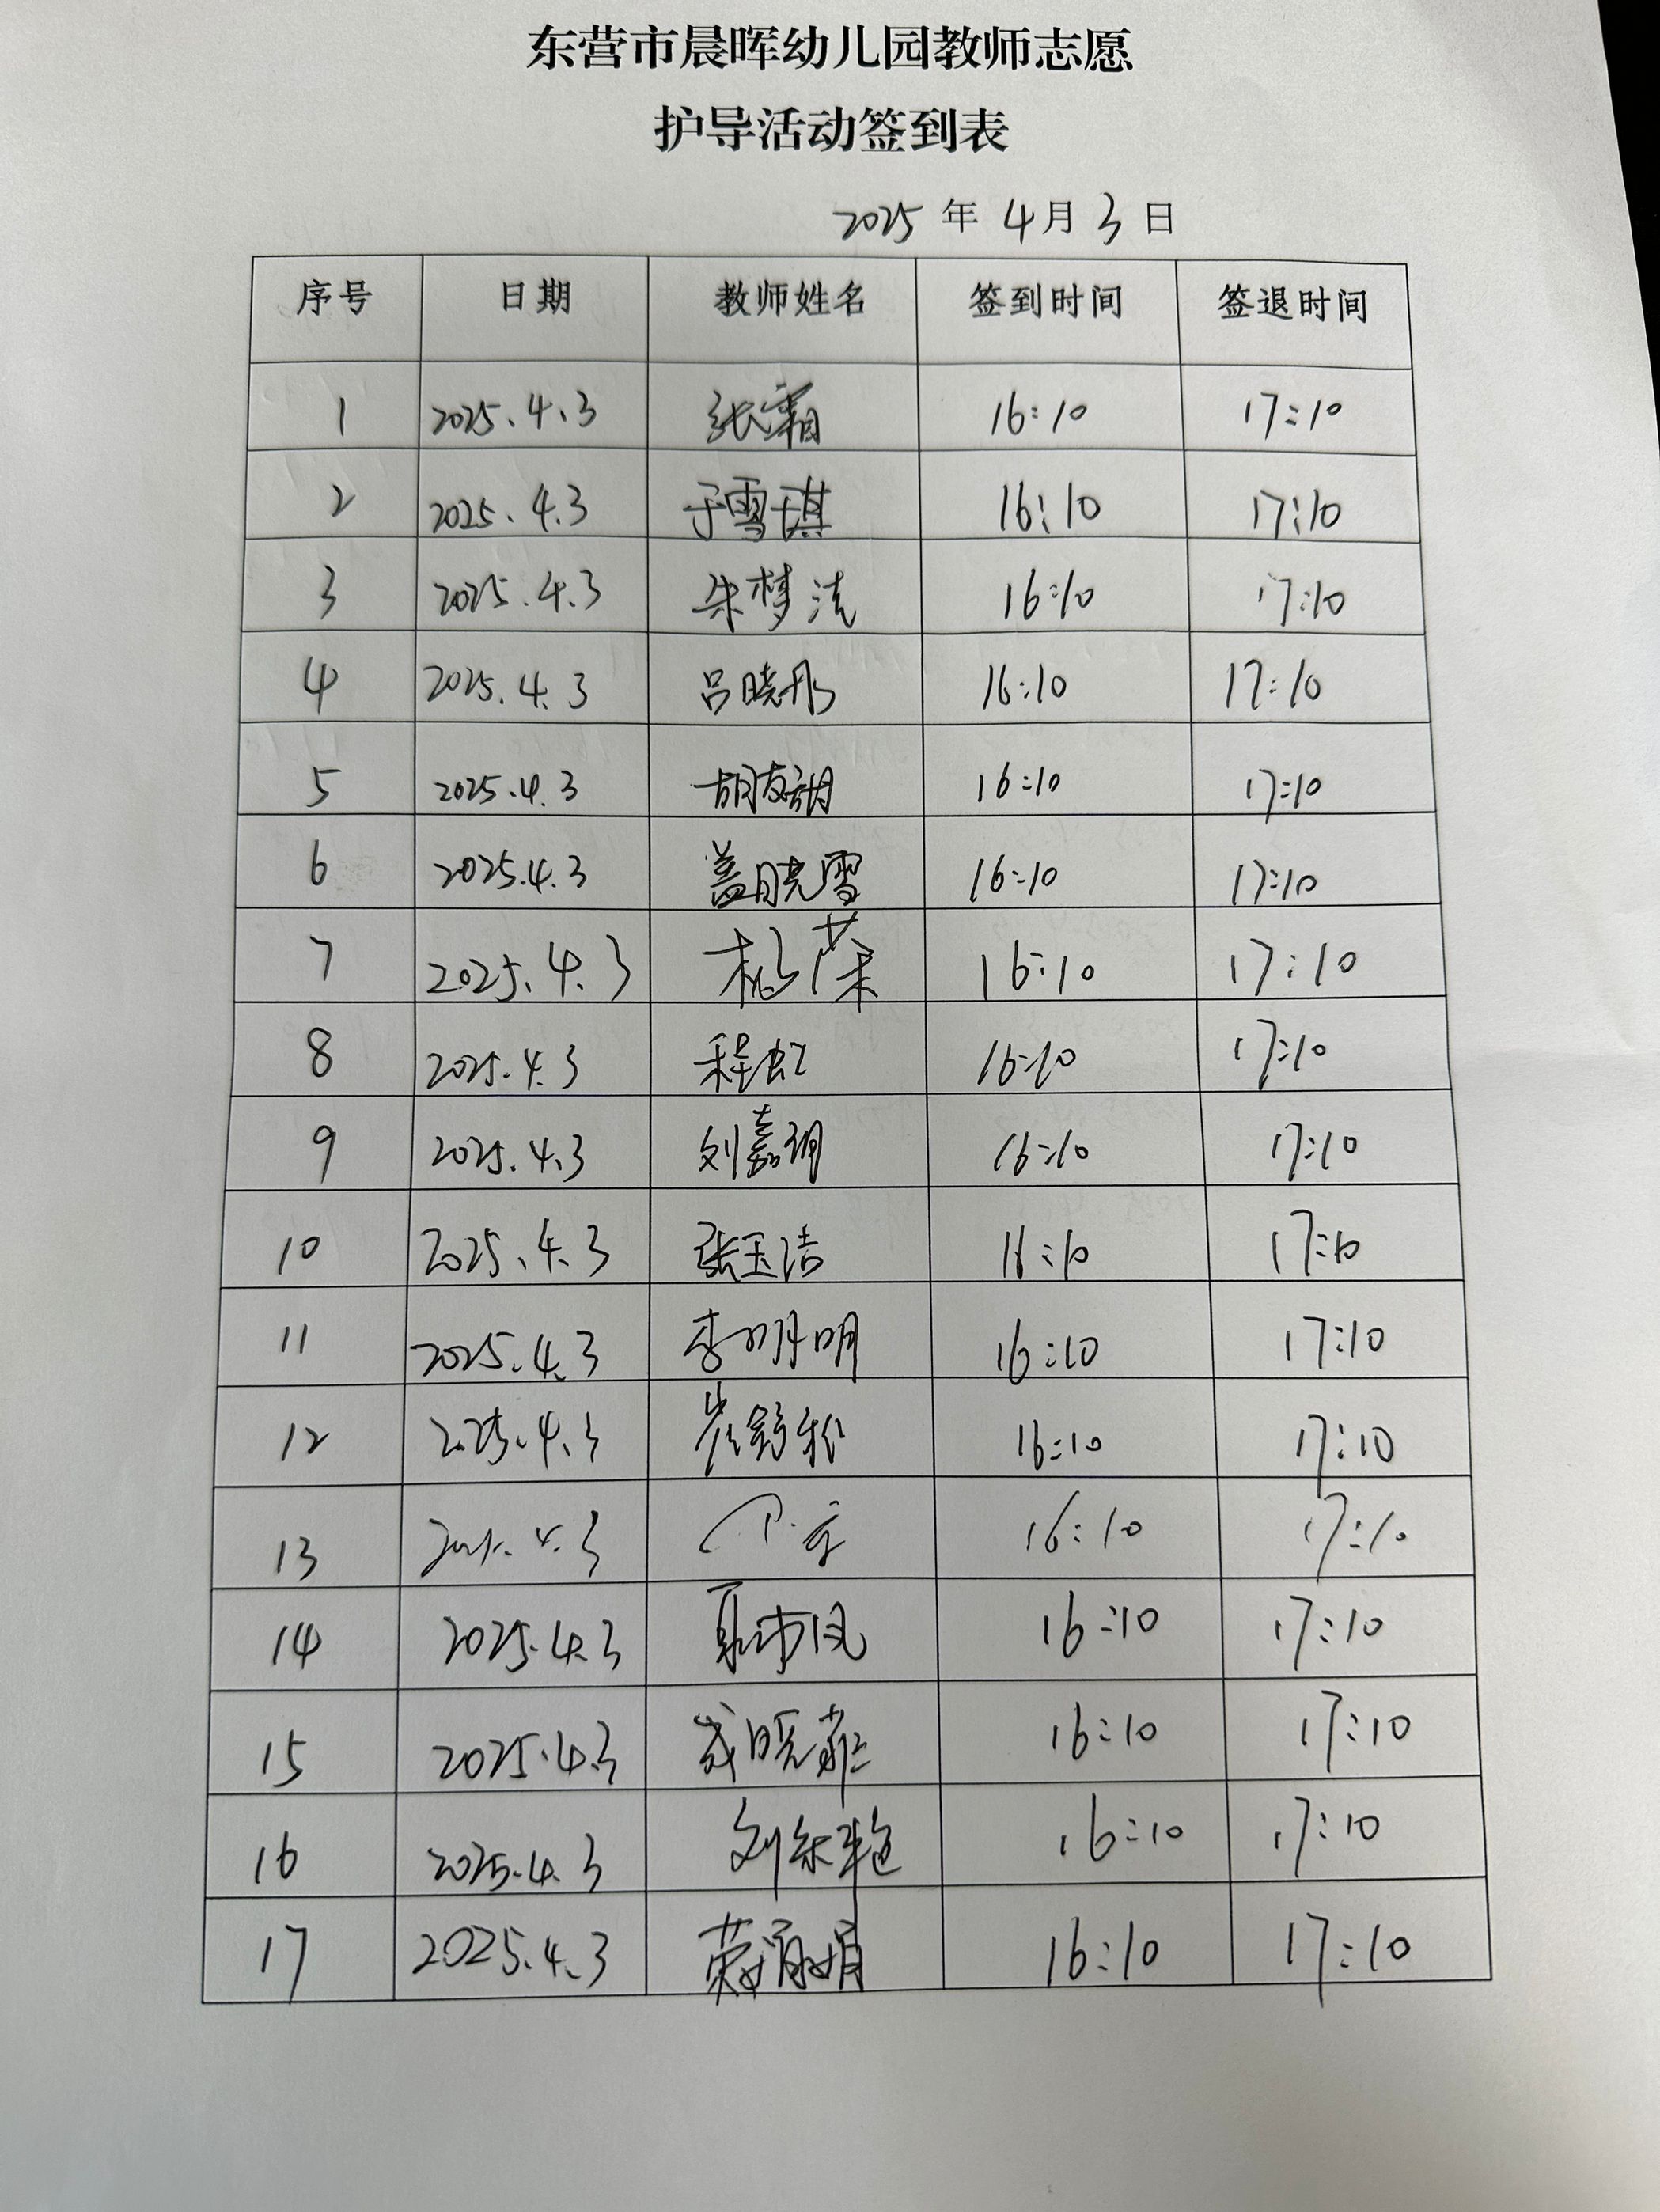 东营市晨晖幼儿园教师志愿
护导活动签到表
2025 年 4月 3 日
序号 日期 教师姓名 签到时间 签退时间
1 2025.4.3 张霜 16:10 17:10
2 2025.4.3 于雪琪 16:10 17:10
3 2025.4.3 朱梦洁 16:10 17:10
4 2025.4.3 吕晓彤 16:10 17:10
5 2025.4.3 16:10 17:10
6 2025.4.3 盖晓雪 16:10 17:10
7 2025.4.3 杨荣 16:10 17:10
8 2025.4.3 程虹 16:10 17:10
9 2025.4.3 刘嘉玥 16:10 17:10
10 2025.4.3 张玉洁 16:10 17:10
11 2025.4.3 李明明 16:10 17:10
12 2025.4.3 16:10 17:10
13 2025.4.3 16:10 17:10
14 2025.4.3 16:10 17:10
15 2025.4.3 16:10 17:10
16 2025.4.3 16:10 17:10
17 2025.4.3 16:10 17:10